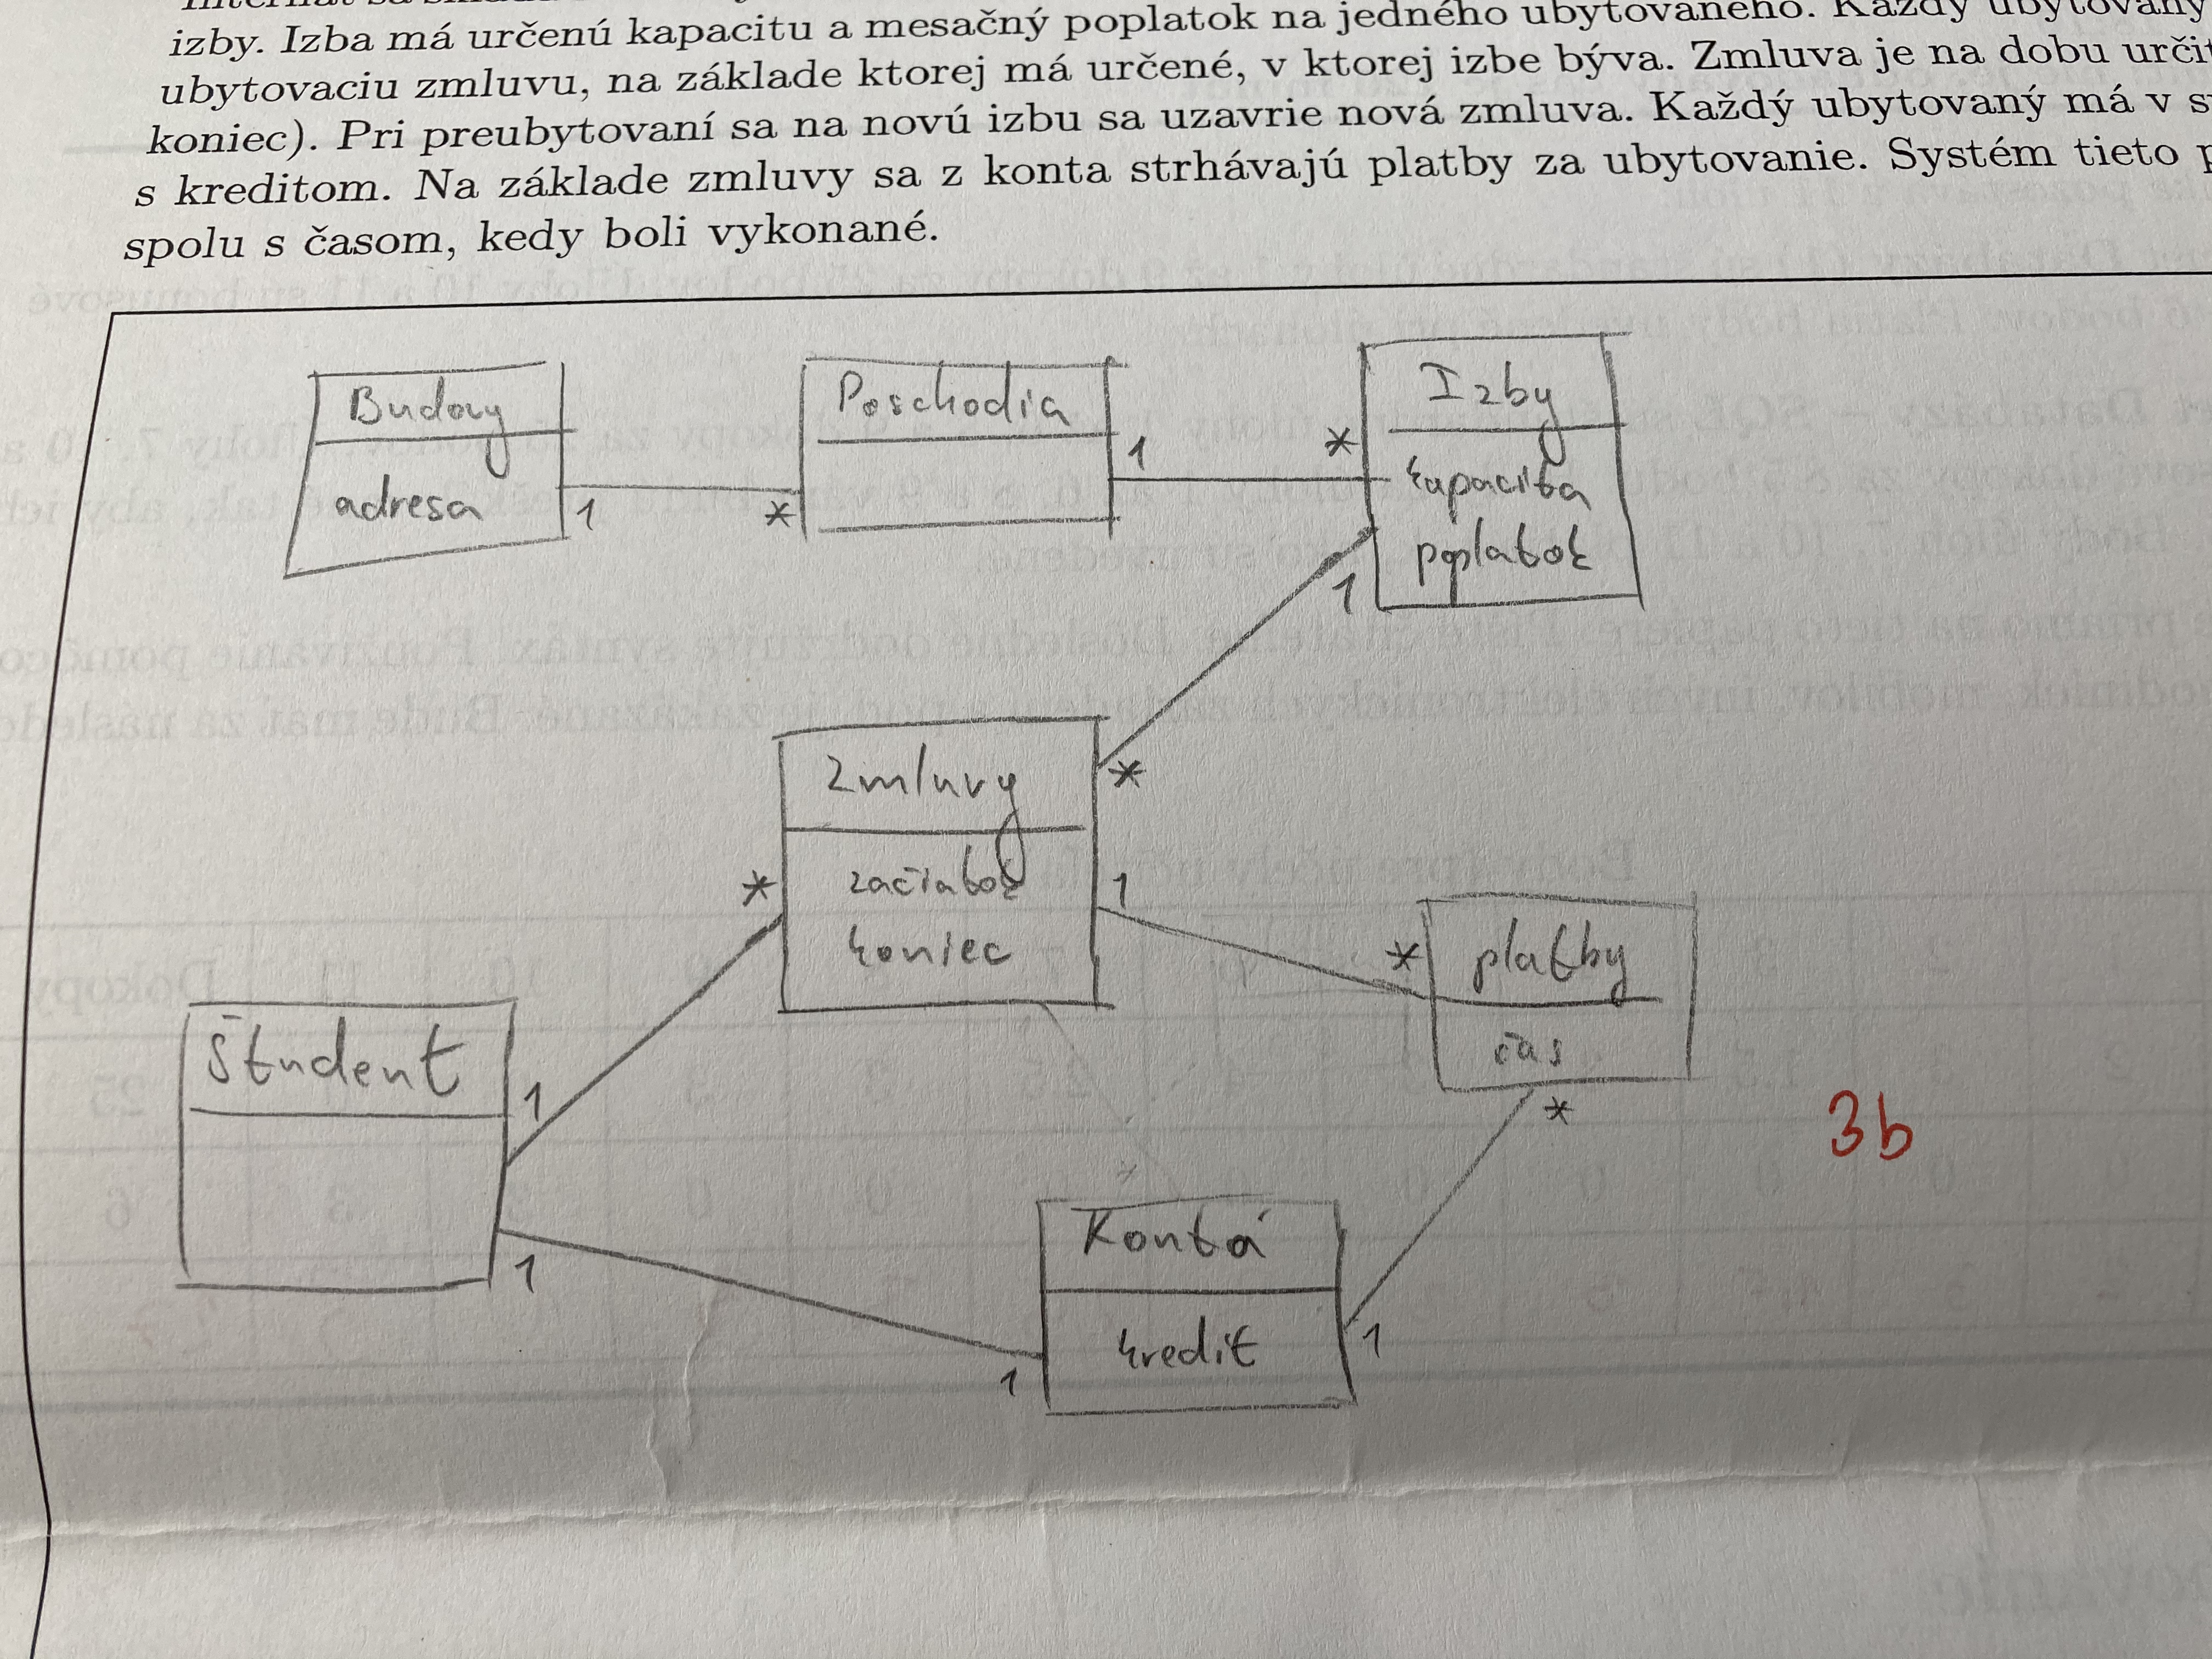 izby. Izba má určenú kapacitu a mesačný poplatok na jedného ubytovaného. Každý ubytovaný
ubytovaciu zmluvu, na základe ktorej má určené, v ktorej izbe býva. Zmluva je na dobu
koniec). Pri preubytovaní sa na novú izbu sa uzavrie nová zmluva. Každý ubytovaný má v
s kreditom. Na základe zmluvy sa z konta strhávajú platby za ubytovanie. Systém tieto
spolu s časom, kedy boli vykonané.
Budovy
adresa
1
*
Poschodia
1
*
Izby
kapacita
poplatok
1
*
Zmluvy
začiatok
koniec
*
1
*
platby
čas
*
Študent
1
1
3b
Kontá
kredit
1
1